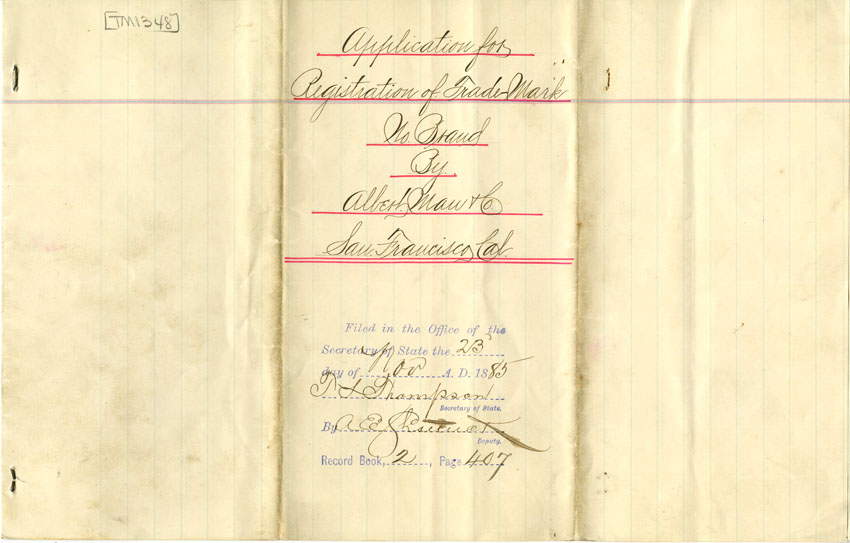 [TM1348]
Application for
Registration of Trade Mark
No Brand
By
Albert Mau & Co.
San Francisco Cal.
Filed in the Office of the
Secretary of State the 23
day of Nov A. D. 1885
T L Thompson
Secretary of State.
By A E
Deputy.
Record Book, 2, Page 407